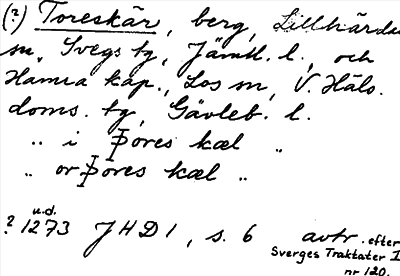 (?) Toreskär, berg, Lillhärdal
sn, Svegs tg, Jämtl. l., och
Hamra kap., Los sn, V. Häls.
doms. tg, Gävleb. l.
,, i Þores kæl ,,
,, or Þores kæl ,,
u.d.
? 1273 JHD 1, s. 6 avtr. efter
Sveriges Traktater I
nr 120.